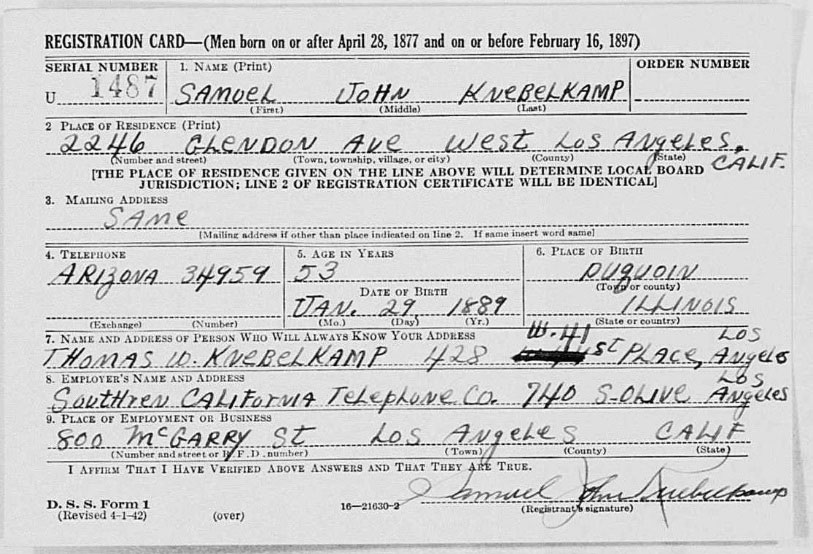 REGISTRATION CARD—(Men born on or after April 28, 1877 and on or before February 16, 1897)
SERIAL NUMBER 1. NAME (Print) ORDER NUMBER
U 1487 SAMUEL JOHN KNEBELKAMP
(First) (Middle) (Last)
2 PLACE OF RESIDENCE (Print)
2246 GLENDON AVE WEST LOS ANGELES, CALIF.
(Number and street) (Town, township, village, or city) (County) (State)
[THE PLACE OF RESIDENCE GIVEN ON THE LINE ABOVE WILL DETERMINE LOCAL BOARD
JURISDICTION; LINE 2 OF REGISTRATION CERTIFICATE WILL BE IDENTICAL]
3. MAILING ADDRESS
SAME
[Mailing address if other than place indicated on line 2. If same insert word same]
4. TELEPHONE 5. AGE IN YEARS 6. PLACE OF BIRTH
ARIZONA 34959 53 DUQUOIN
(Town or county)
DATE OF BIRTH
JAN. 29, 1889 ILLINOIS
(Exchange) (Number) (Mo.) (Day) (Yr.) (State or country)
7. NAME AND ADDRESS OF PERSON WHO WILL ALWAYS KNOW YOUR ADDRESS
THOMAS W. KNEBELKAMP 428 W. 41 ST PLACE, LOS Angeles
8. EMPLOYER'S NAME AND ADDRESS
Southren CALIFORNIA Telephone Co. 740 S-OLIVE LOS Angeles
9. PLACE OF EMPLOYMENT OR BUSINESS
800 McGARRY ST LOS ANGELES CALIF
(Number and street or R. F. D. number) (Town) (County) (State)
I AFFIRM THAT I HAVE VERIFIED ABOVE ANSWERS AND THAT THEY ARE TRUE.
Samuel John Knebelkamp
D. S. S. Form 1 16—21630-2 (Registrant's signature)
(Revised 4-1-42) (over)